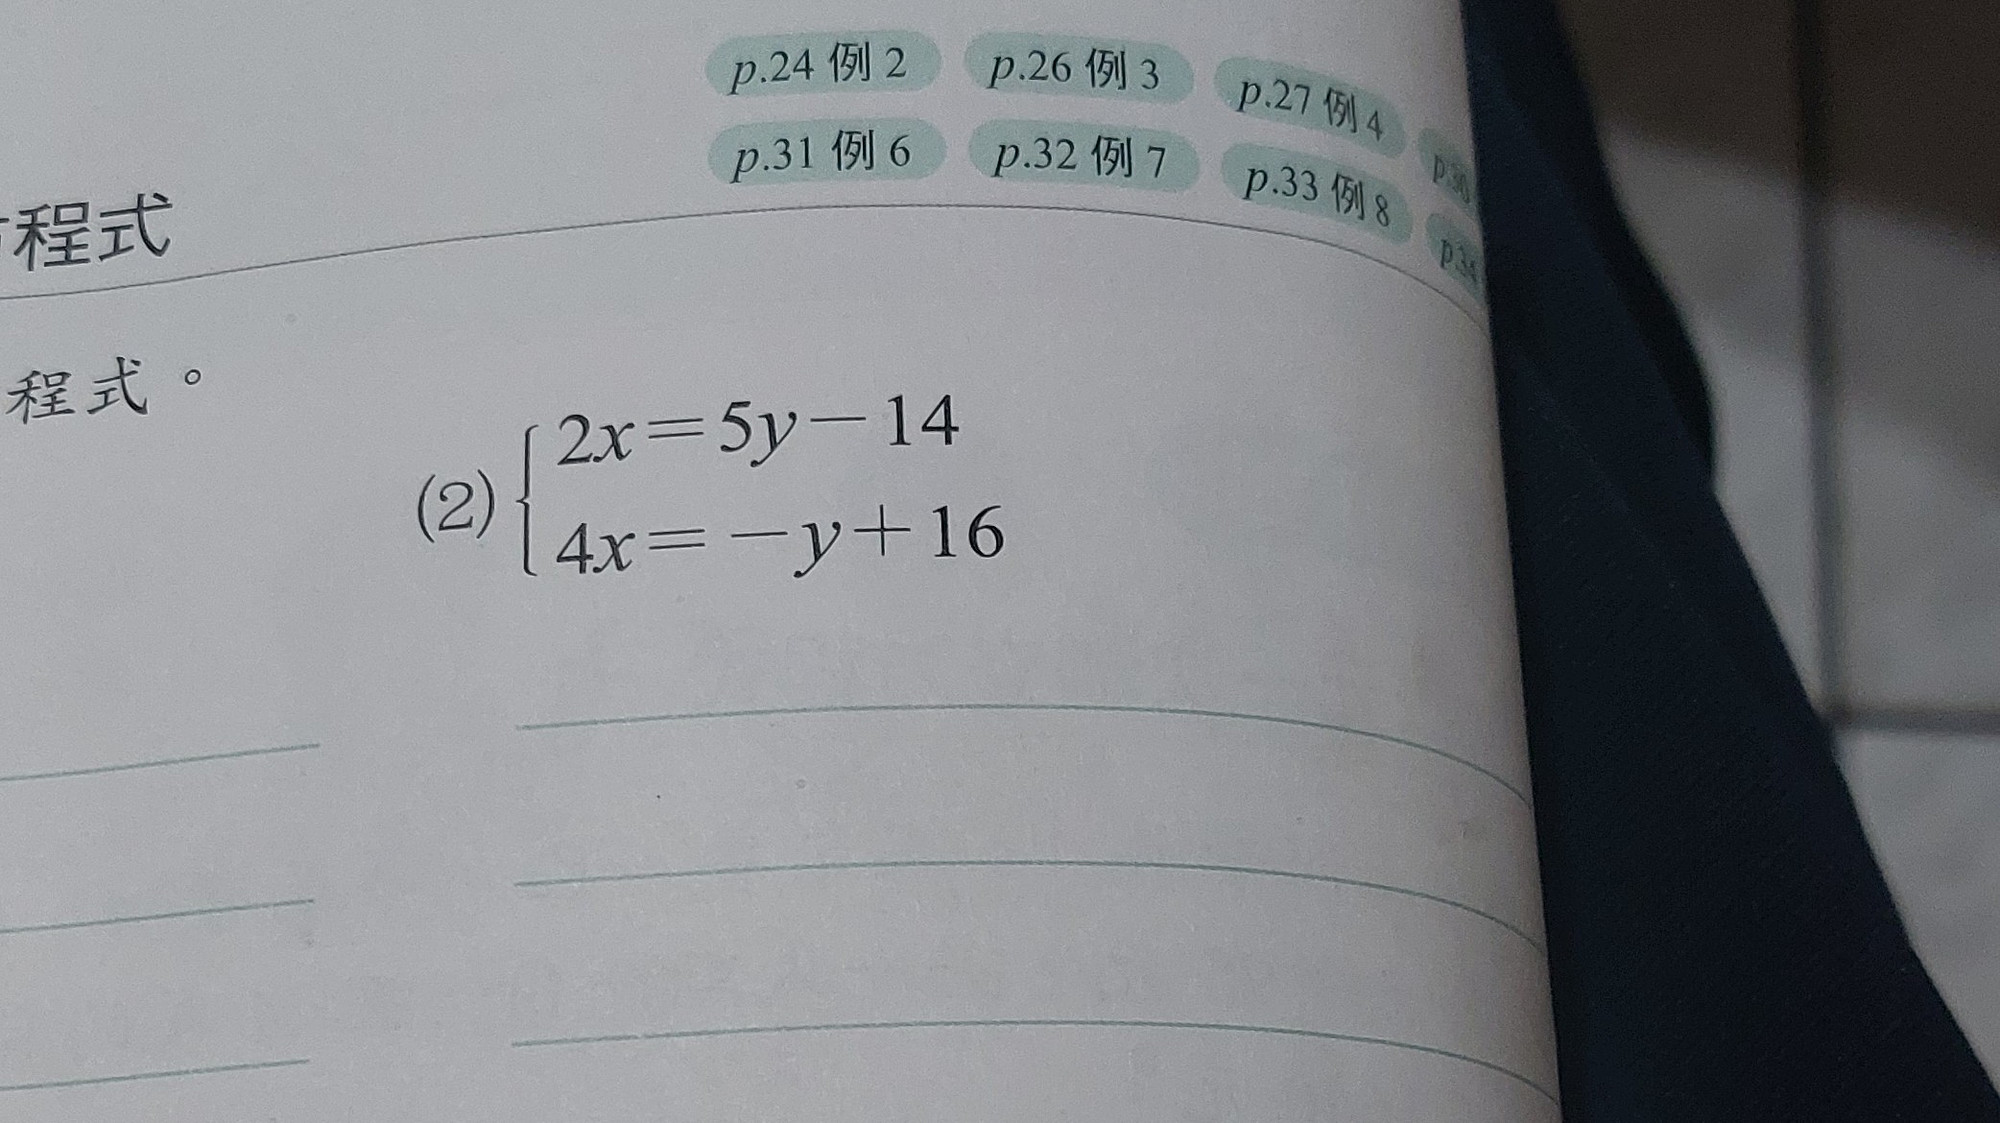 p.24 例 2 p.26 例 3 p.27 例 4
p.31 例 6 p.32 例 7 p.33 例 8
程式
程式。
(2) { 2x=5y-14
4x=-y+16